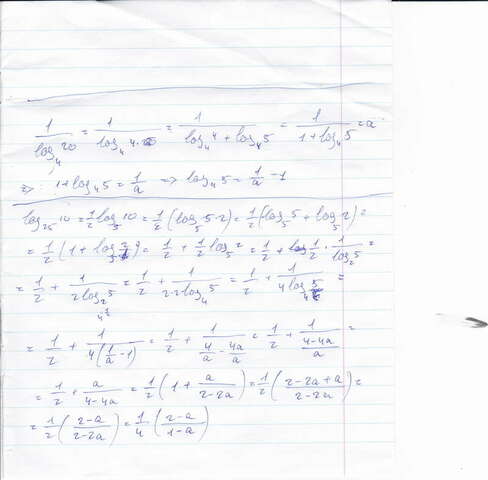 1/log₄20 = 1/log₄4·5 = 1/(log₄4 + log₄5) = 1/(1+log₄5) = a
⇒ 1+log₄5 = 1/a ⇒ log₄5 = 1/a - 1
log₂₅10 = 1/2 log₅10 = 1/2 (log₅5·2) = 1/2 (log₅5 + log₅2) =
= 1/2 (1 + log₅2) = 1/2 + 1/2 log₅2 = 1/2 + 1/2 · 1/log₂5 =
= 1/2 + 1/(2log₂5) = 1/2 + 1/(2·2log₄5) = 1/2 + 1/(4log₄5) =
= 1/2 + 1/(4(1/a - 1)) = 1/2 + 1/(4/a - 4a/a) = 1/2 + 1/((4-4a)/a) =
= 1/2 + a/(4-4a) = 1/2 (1 + a/(2-2a)) = 1/2 ((2-2a+a)/(2-2a)) =
= 1/2 ((2-a)/(2-2a)) = 1/4 ((2-a)/(1-a))